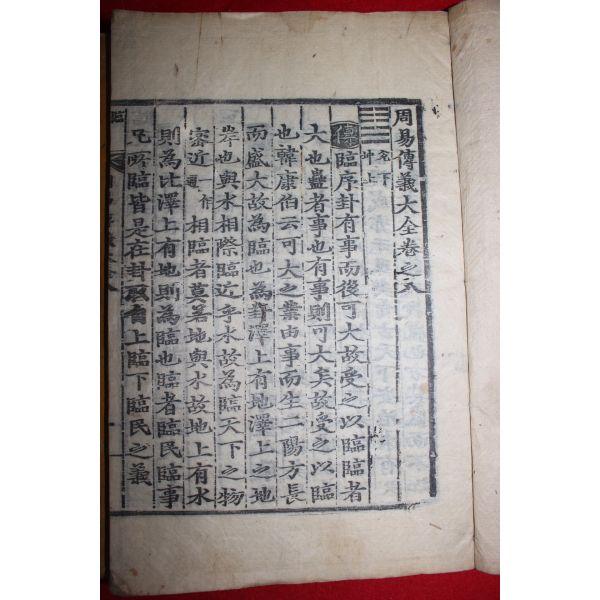 周易傳義大全卷之八
兌下
坤上
傳臨序卦有事而後可大故受之以臨臨者
大也蠱者事也有事則可大矣故受之以臨
也韓康伯云可大之業由事而生二陽方長
而盛大故為臨也為卦澤上有地澤上之地
岸也與水相際臨近乎水故為臨天下之物
密近一作邇相臨者莫若地與水故地上有水
則為比澤上有地則為臨也臨者臨民臨事
凡所臨皆是在卦取自上臨下臨民之義